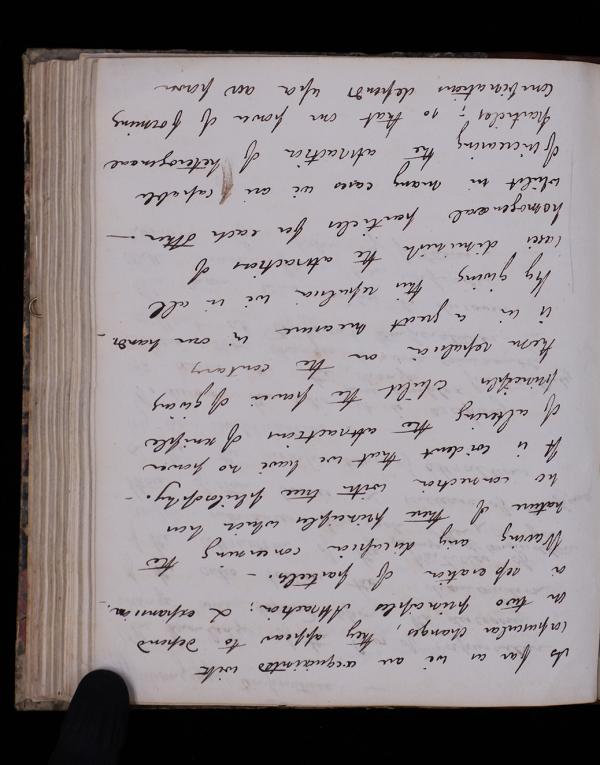 As far as we are acquainted with
corpuscular changes, they appear to depend
on two principles Attraction; & expansion
or seperation of particles. -
Waving any discussion concerning the
nature of these principles which has
no connection with true philosophy. -
It is evident that we have no power
of altering the attractions of simple
principles whilst the power of giving
them repulsion on the contrary
is in a great measure in our hands. -
By giving this repulsion we in all
cases diminish the attractions of
homogeneal particles for each other -
whilst in many cases we are capable
of increasing the attraction of heterogeneal
particles; so that our power of forming
combinations depends upon our power